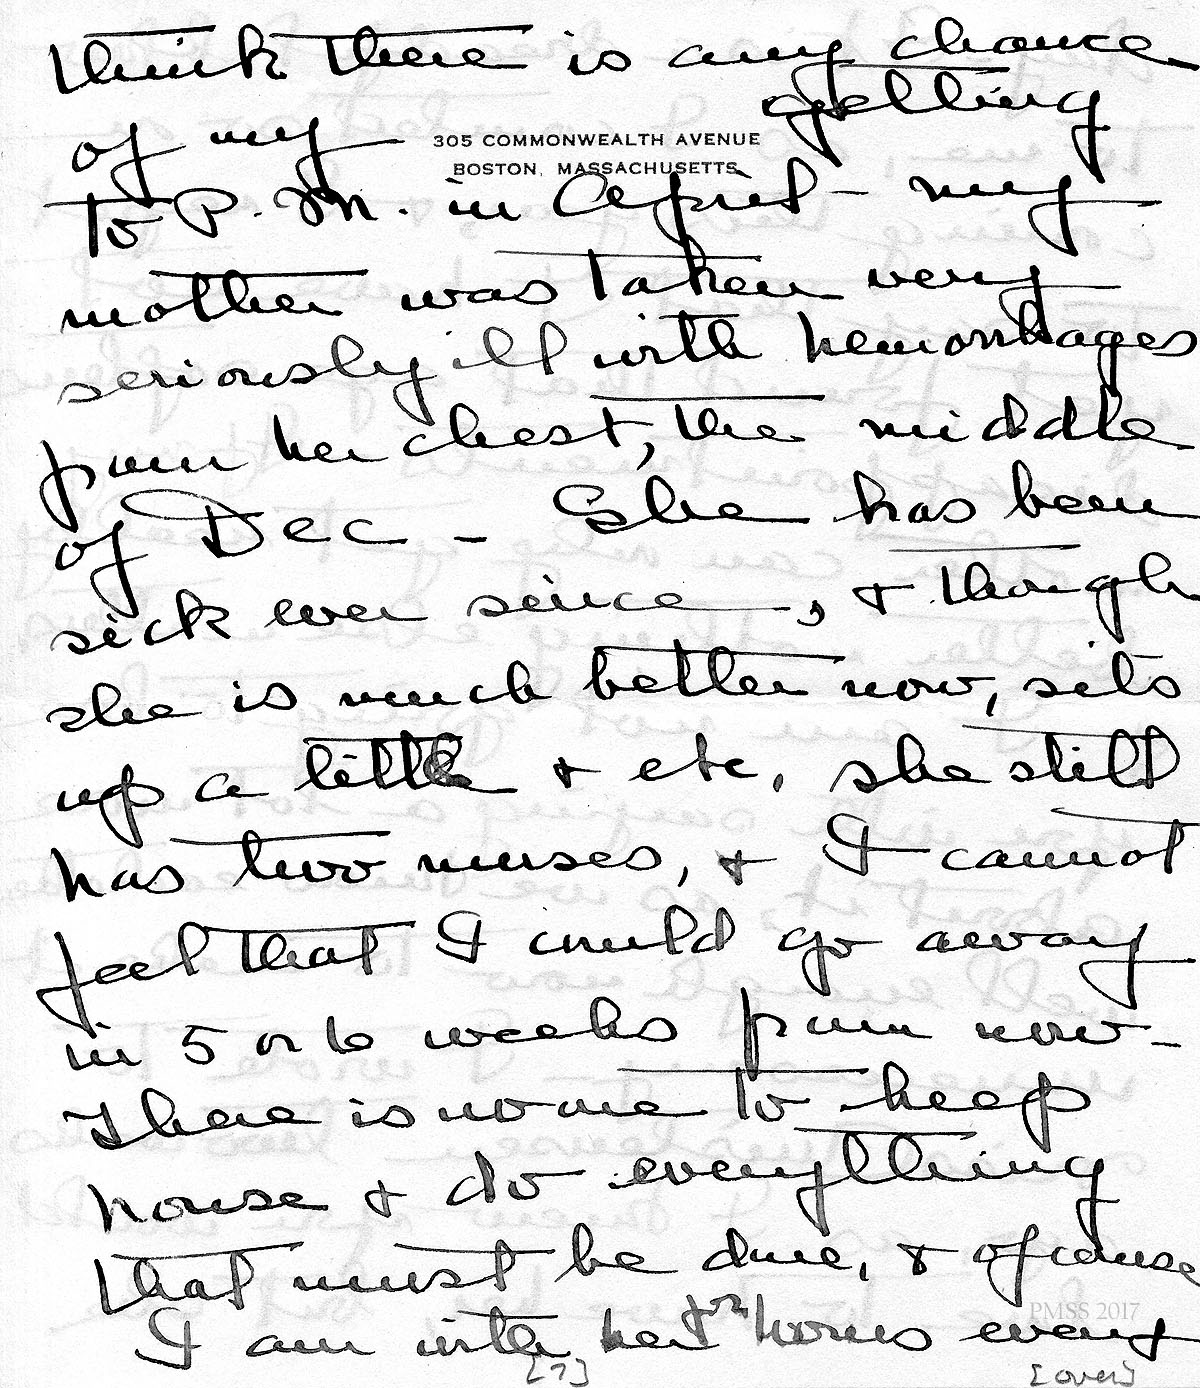 think there is any chance
of my getting
305 COMMONWEALTH AVENUE
BOSTON, MASSACHUSETTS
to P. M. in April - my
mother was taken very
seriously ill with hemorrhages
from her chest, the middle
of Dec - She has been
sick ever since, & though
she is much better now, sits
up a little & etc, she still
has two nurses, & I cannot
feel that I could go away
in 5 or 6 weeks from now -
There is no one to keep
house & do everything
that must be done, & of course
I am with her for hours every
[?] [over]
PMSS 2017